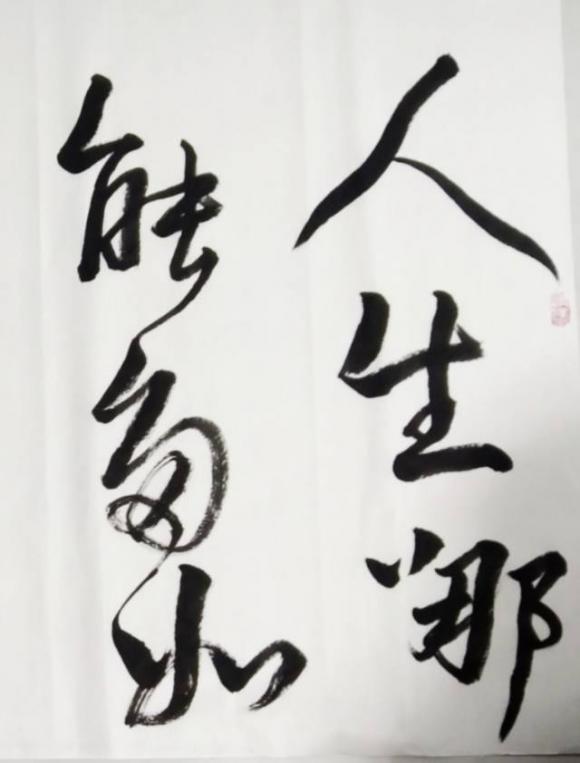 人生哪
能多如